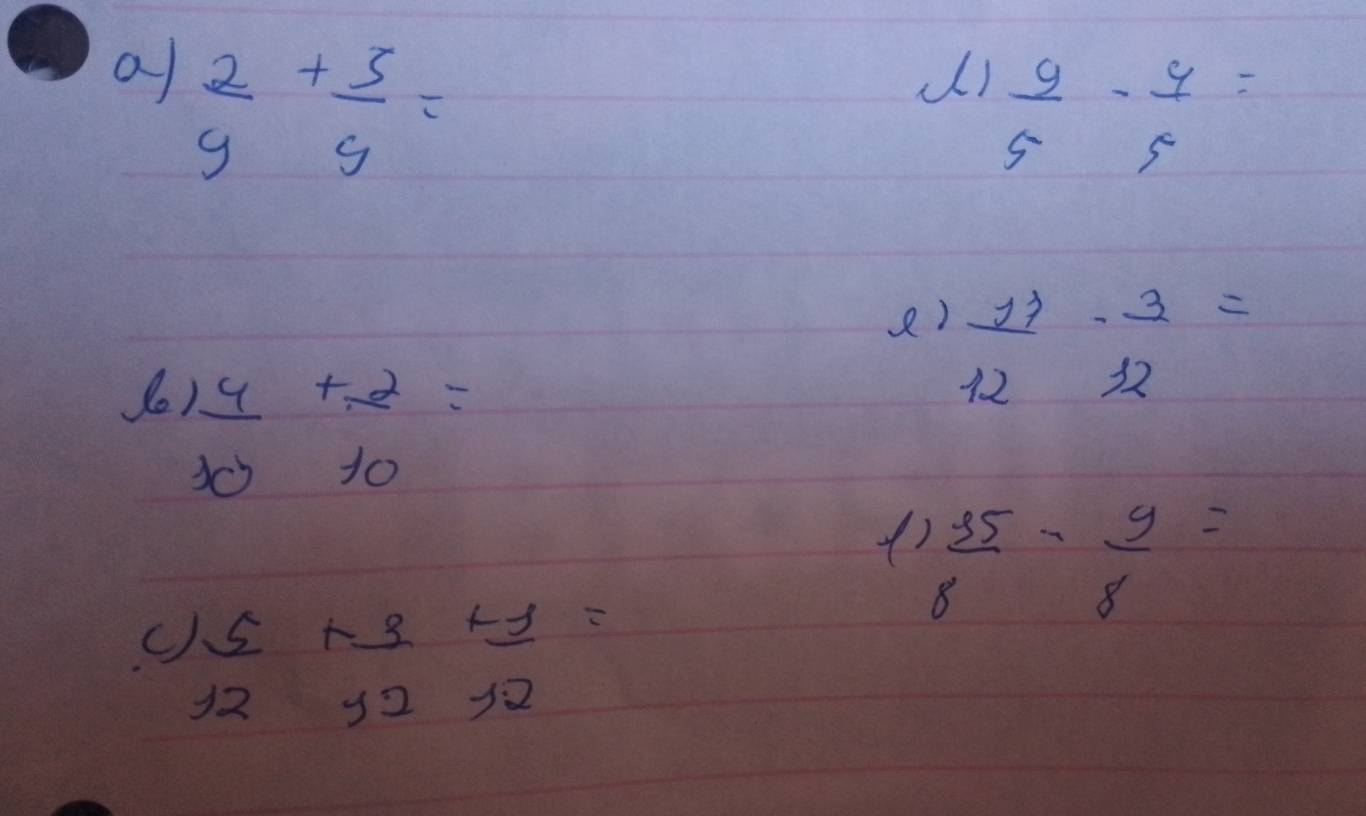 a) 2/9 + 5/9 =
b) 4/10 + 2/10 =
c) 5/12 + 3/12 + 1/12 =
d) 9/5 - 7/5 =
e) 11/12 - 3/12 =
f) 15/8 - 9/8 =